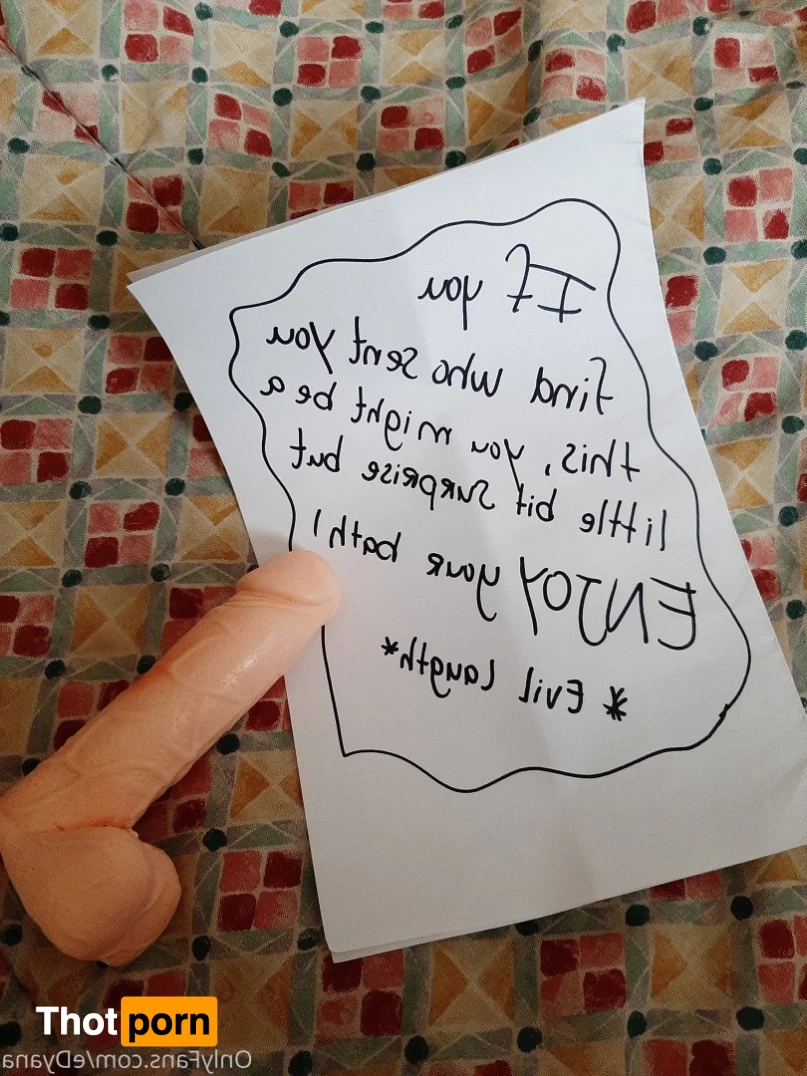 If you
find who sent you
this, you might be a
little bit surprise but
ENJOY your bath!
* Evil Laugth*
Thot porn
OnlyFans.com/eDyana